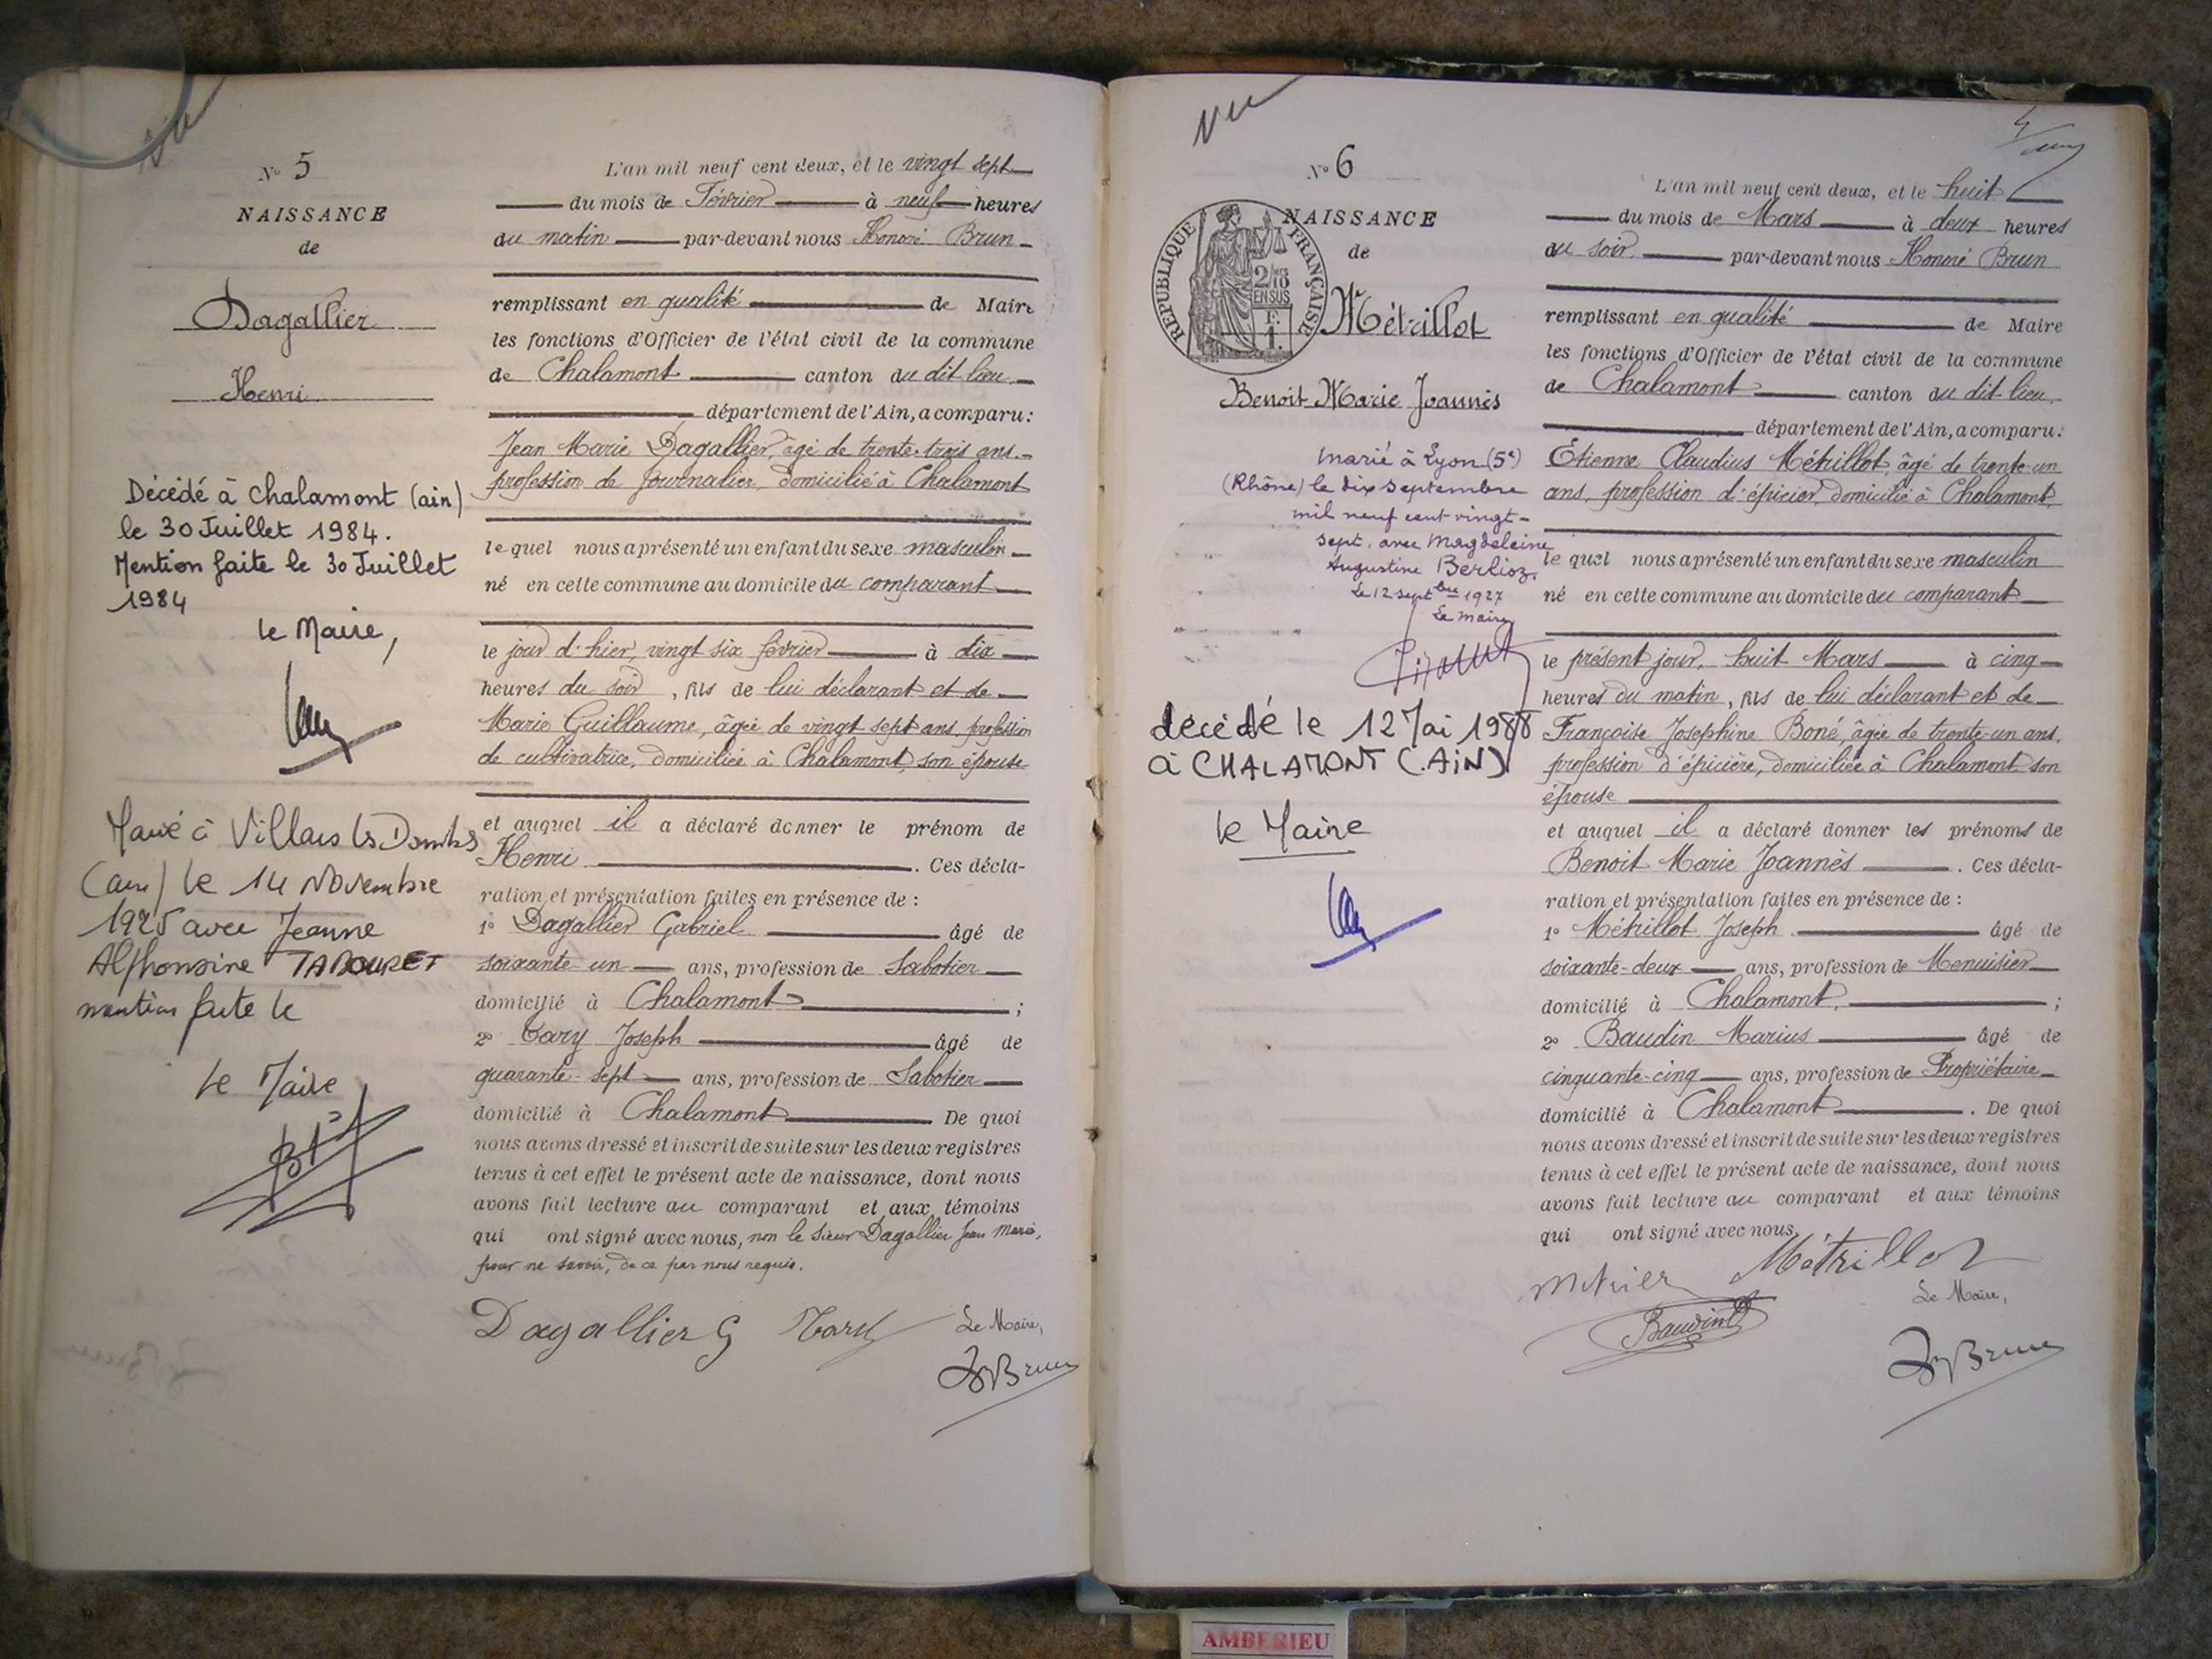 vu
N° 5
NAISSANCE
de
Dagallier
Henri
Décédé à Chalamont (ain)
le 30 Juillet 1984.
Mention faite le 30 Juillet
1984
le Maire,
Marié à Villars les Dombes
(ain) le 14 Novembre
1925 avec Jeanne
Alphonsine TABOURET
mention faite le
le Maire
L'an mil neuf cent deux, et le vingt sept
du mois de Février à neuf heures
du matin par-devant nous Honoré Brun
remplissant en qualité de Maire
les fonctions d'Officier de l'état civil de la commune
de Chalamont canton du dit lieu.
département de l'Ain, a comparu:
Jean Marie Dagallier, âgé de trente-trois ans.
profession de journalier, domicilié à Chalamont
lequel nous a présenté un enfant du sexe masculin
né en cette commune au domicile du comparant
le jour d'hier, vingt six février à dix
heures du soir, fils de lui déclarant et de
Marie Guillaume, âgée de vingt sept ans, profession
de cultivatrice, domiciliée à Chalamont, son épouse
et auquel il a déclaré donner le prénom de
Henri. Ces décla-
ration et présentation faites en présence de :
1° Dagallier Gabriel âgé de
soixante-un ans, profession de Sabotier
domicilié à Chalamont ;
2° Tary Joseph âgé de
quarante-sept ans, profession de Sabotier
domicilié à Chalamont De quoi
nous avons dressé et inscrit de suite sur les deux registres
tenus à cet effet le présent acte de naissance, dont nous
avons fait lecture au comparant et aux témoins
qui ont signé avec nous, non le sieur Dagallier Jean Marie,
pour ne savoir, de ce par nous requis.
Dagallier G Tary Le Maire,
Hé Brun
vu
N° 6
NAISSANCE
de
RÉPUBLIQUE FRANÇAISE
2/10 EN SUS
F. 1.
Métrillot
Benoit Marie Joannès
marié à Lyon (5e)
(Rhône) le dix septembre
mil neuf cent vingt-
sept, avec Magdeleine
Augustine Berlioz.
Le 12 septbre 1927
Le maire
décédé le 12 Mai 1988
à CHALAMONT (AiN)
le Maire
L'an mil neuf cent deux, et le huit
du mois de Mars à deux heures
du soir par-devant nous Honoré Brun
remplissant en qualité de Maire
les fonctions d'Officier de l'état civil de la commune
de Chalamont canton du dit lieu.
département de l'Ain, a comparu:
Etienne Claudius Métrillot, âgé de trente-un
ans, profession d'épicier, domicilié à Chalamont,
lequel nous a présenté un enfant du sexe masculin
né en cette commune au domicile du comparant
le présent jour, huit Mars à cinq
heures du matin, fils de lui déclarant et de
Françoise Josephine Boné, âgée de trente-un ans,
profession d'épicière, domiciliée à Chalamont, son
épouse
et auquel il a déclaré donner les prénoms de
Benoit Marie Joannès. Ces décla-
ration et présentation faites en présence de :
1° Métrillot Joseph âgé de
soixante-deux ans, profession de Menuisier
domicilié à Chalamont, ;
2° Baudin Marius âgé de
cinquante-cinq ans, profession de Propriétaire
domicilié à Chalamont. De quoi
nous avons dressé et inscrit de suite sur les deux registres
tenus à cet effet le présent acte de naissance, dont nous
avons fait lecture au comparant et aux témoins
qui ont signé avec nous,
Métrillot
Baudin
Le Maire,
Hé Brun
AMBERIEU